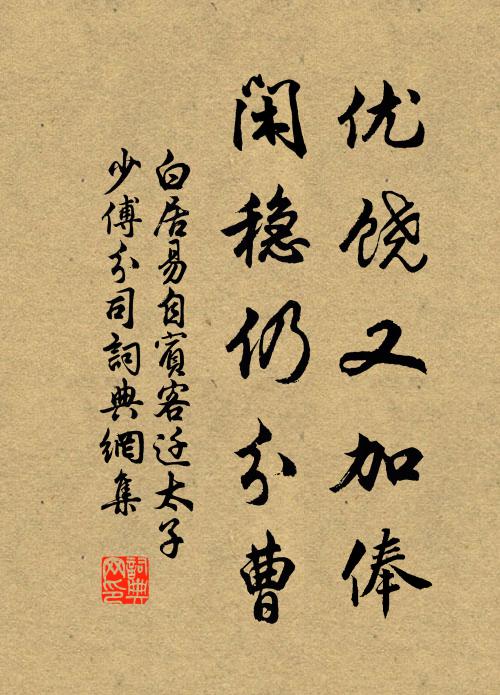 优饶又加俸
闲稳仍分曹
白居易自賓客迁太子
少傅分司詞典網集
詞典
网印